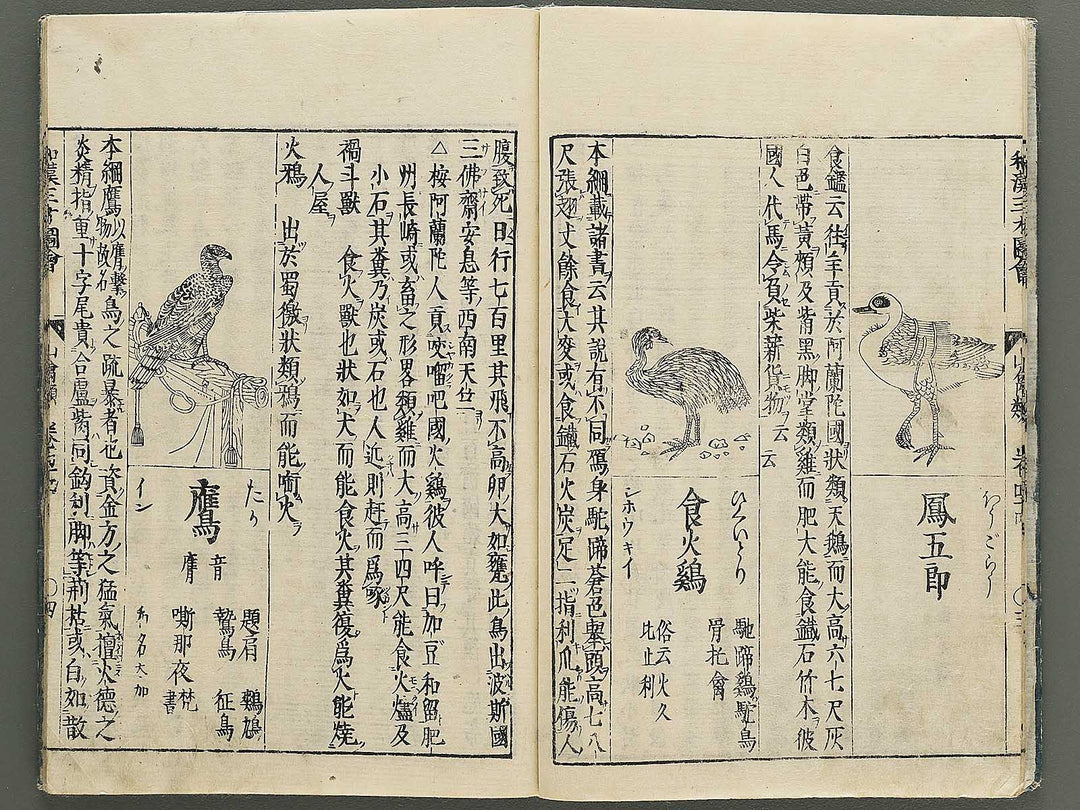 和漢三才圖會
山禽類
鳳五郎
ほうごらう
食鑑云往年貢於阿蘭陀國狀類天鵝而大高六七尺灰
白色帶黃頰及觜黑脚掌類雞而肥大能食鐵石竹木彼
國人代馬令負柴薪貨物云云
食火鷄
ひくいどり
シホウキイ
駝蹄鷄 駝鳥
骨托禽
俗云火久
比止利
本綱載諸書云其說有不同鴈身駝蹄蒼色擧頭高七八
尺張翅丈餘食大麥或食鐵石火炭足二指利爪能傷人
腹致死日行七百里其飛不高卵大如甕此鳥出波斯國
三佛齋安息等西南天竺
△按阿蘭陀人貢咬𠺕吧國火鷄彼人呼曰加豆和留肥
州長崎或畜之形畧類雞而大高三四尺能食火燼及
小石其糞乃炭或石也人近則赶而爲啄
禍斗獸 食火獸也狀如犬而能食火其糞復爲火能燒
人屋
火鴉 出於蜀徼狀類鴉而能㗸火
鷹
たか
イン
音膺
題肩 鷂鳩
鷙鳥 征鳥
嘶那夜 梵書
和名太加
本綱鷹以膺擊物故名鳥之疏暴者也資金方之猛氣擅火德之
炎精指重十字尾貴合盧觜同鈎利脚等荊枯或白如散
和漢三才圖會
山禽類
卷之四十四
〇四